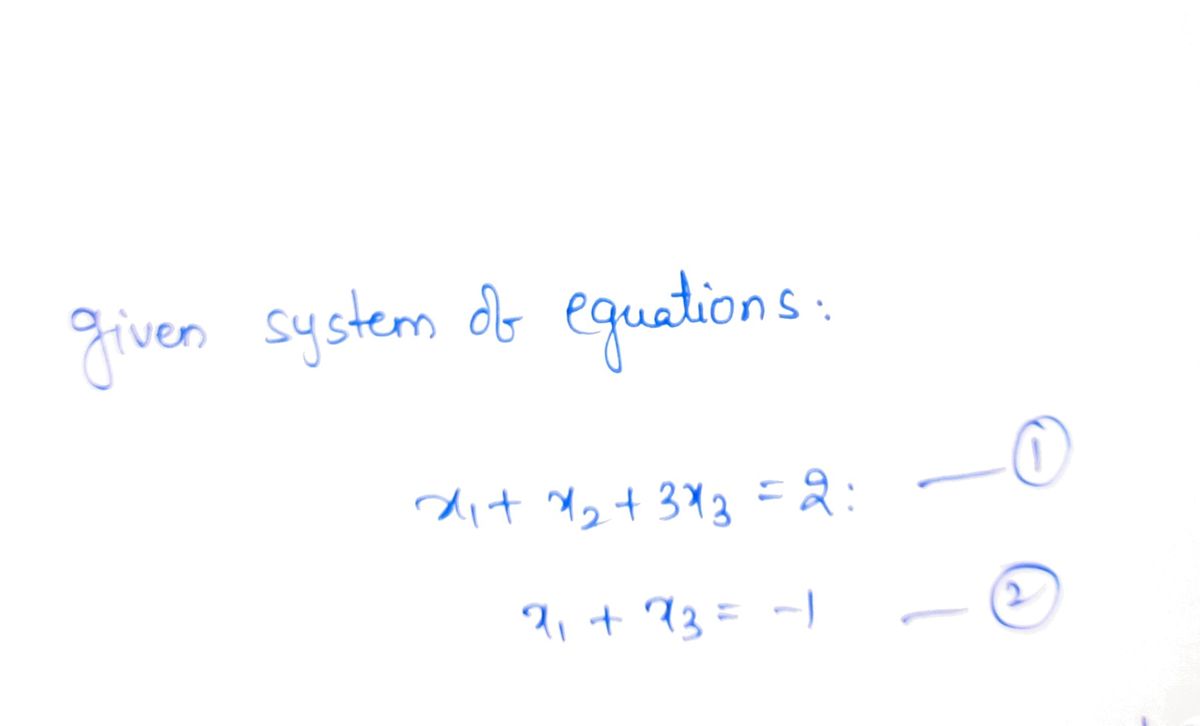 given system of equations:
x₁ + x₂ + 3x₃ = 2: — ①
x₁ + x₃ = -1 — ②